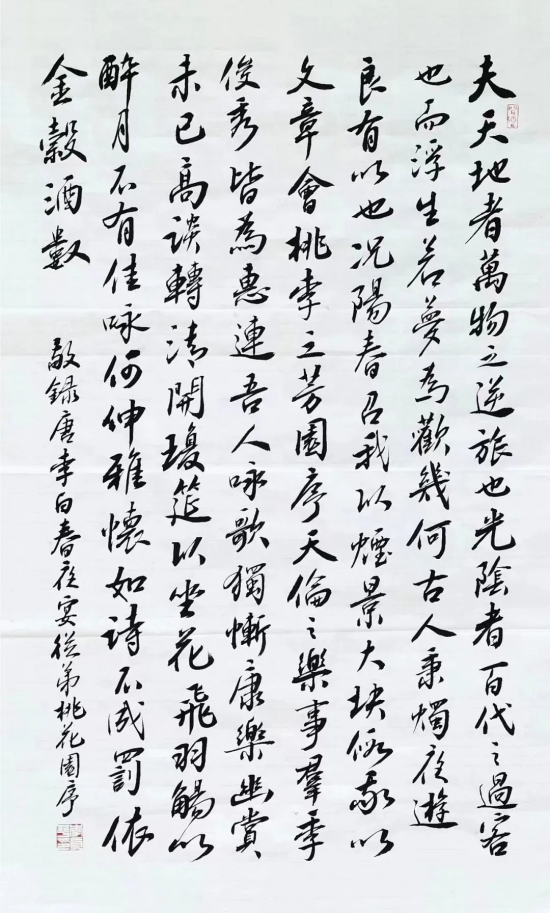 夫天地者萬物之逆旅也光陰者百代之過客
也而浮生若夢為歡幾何古人秉燭夜遊
良有以也况陽春召我以煙景大块假我以
文章會桃李之芳園序天倫之樂事羣季
俊秀皆為惠連吾人咏歌獨慚康樂幽賞
未已高談轉清開瓊筵以坐花飛羽觴以
醉月不有佳咏何伸雅懷如詩不成罰依
金穀酒數
敬錄唐李白春夜宴從弟桃花園序